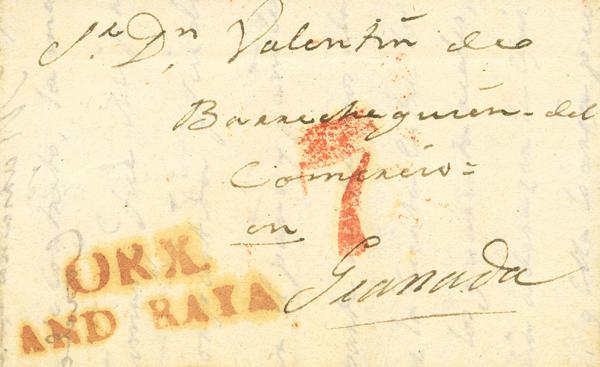 Sr. Dn Valentin de
Barrecheguren del
Comercio =
en
Granada
7
ORX.
AND BAXA